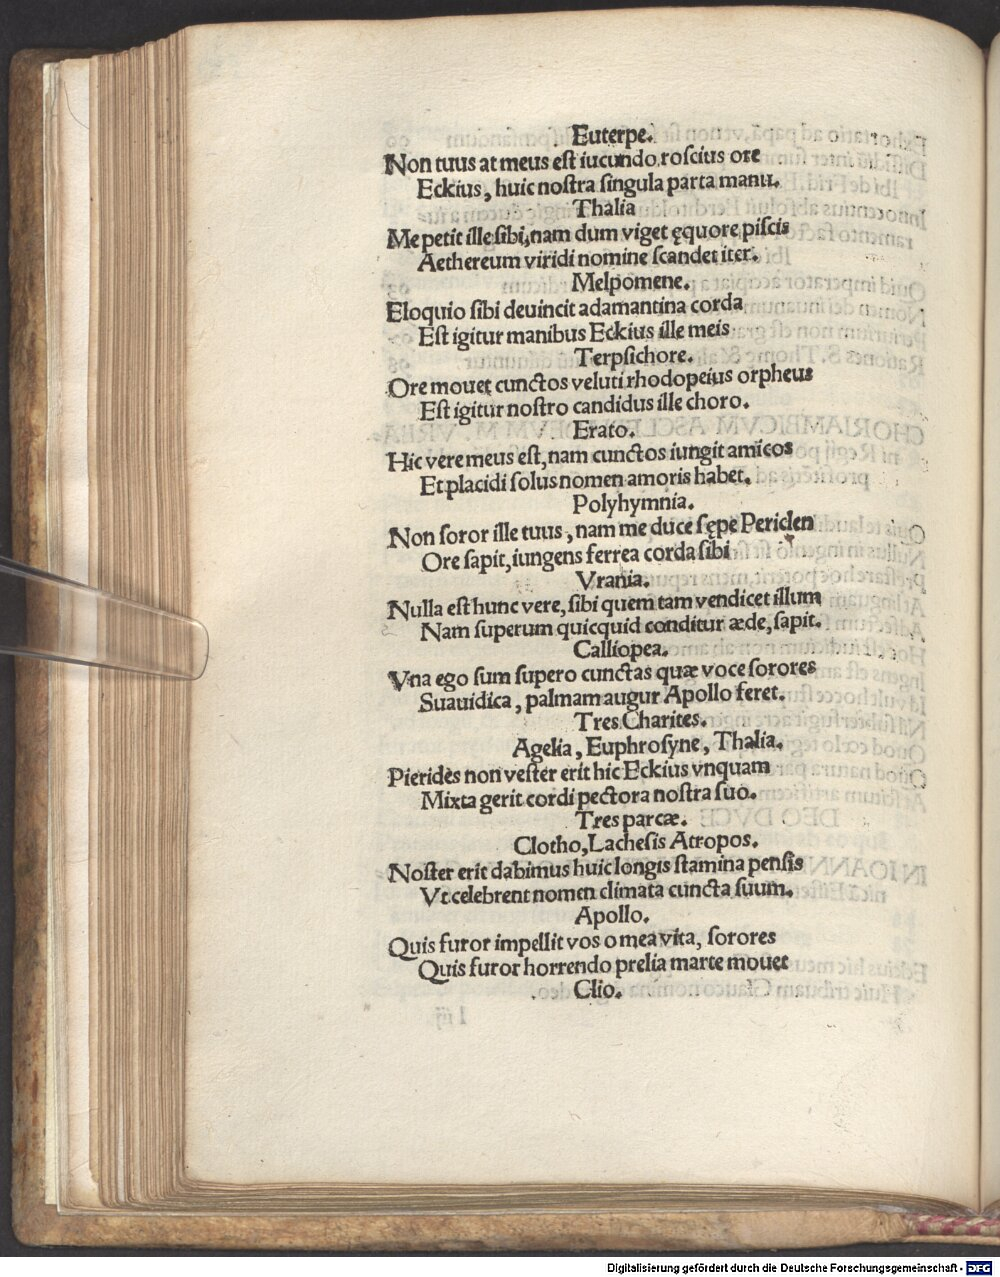 Euterpe.
Non tuus at meus est iucundo roscius ore
Eckius, huic nostra singula parta manu.
Thalia
Me petit ille sibi, nam dum viget ęquore piscis
Aethereum viridi nomine scandet iter.
Melpomene.
Eloquio sibi deuincit adamantina corda
Est igitur manibus Eckius ille meis
Terpsichore.
Ore mouet cunctos veluti rhodopeius orpheus
Est igitur nostro candidus ille choro.
Erato.
Hic vere meus est, nam cunctos iungit amicos
Et placidi solus nomen amoris habet.
Polyhymnia.
Non soror ille tuus, nam me duce sępe Periclen
Ore sapit, iungens ferrea corda sibi
Vrania.
Nulla est hunc vere, sibi quem tam vendicet illum
Nam superum quicquid conditur æde, sapit.
Calliopea.
Vna ego sum supero cunctas quæ voce sorores
Suauidica, palmam augur Apollo feret.
Tres Charites.
Agelia, Euphrosyne, Thalia.
Pierides non vester erit hic Eckius vnquam
Mixta gerit cordi pectora nostra suo.
Tres parcæ.
Clotho, Lachesis Atropos.
Noster erit dabimus huic longis stamina pensis
Vt celebrent nomen climata cuncta suum.
Apollo.
Quis furor impellit vos o mea vita, sorores
Quis furor horrendo prelia marte mouet
Clio.
Digitalisierung gefördert durch die Deutsche Forschungsgemeinschaft - DFG